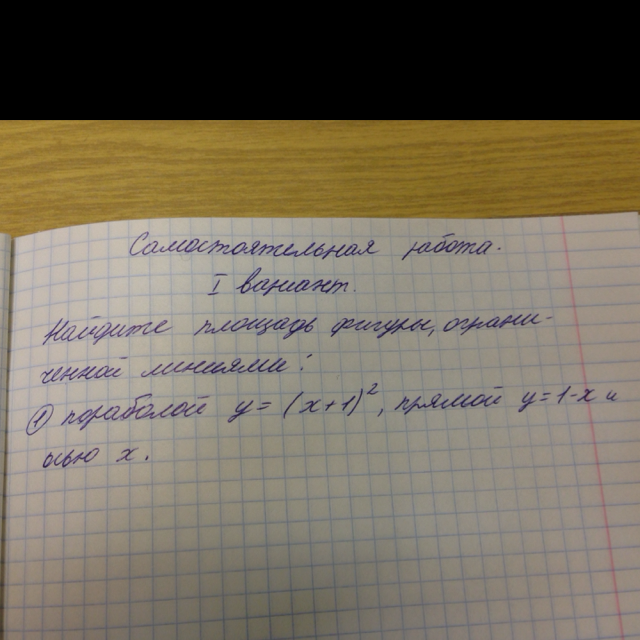 Самостоятельная работа.
I вариант.
Найдите площадь фигуры, ограни-
ченной линиями:
① параболой y = (x+1)², прямой y=1-x и
осью x.